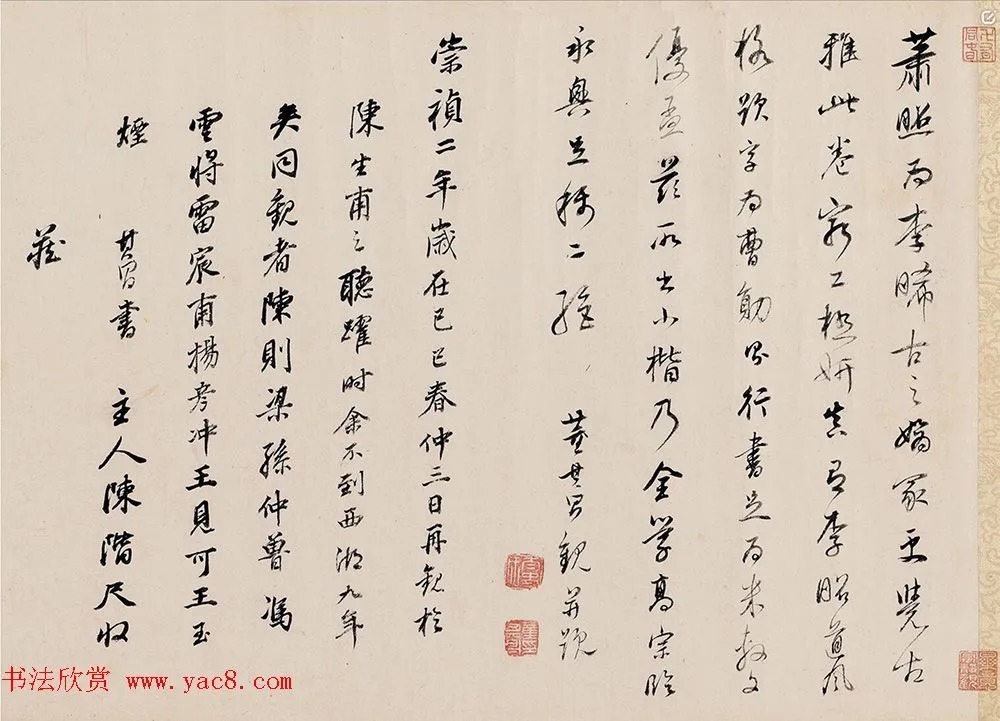 蕭照为李晞古之嫡冢更覺古
雅此卷窮工極妍真有李昭道風
格跋字为曹勛行書足为米敷文
優孟茲所書小楷乃全學高宗臨
永興足稱二絕 董其昌觀并題
崇禎二年歲在己巳春仲三日再觀於
陳生甫之聽躍時余不到西湖九年
矣同觀者陳則梁孫仲魯馮
雲將雷宸甫楊彥冲王見可王玉
煙 其昌書 主人陳階尺收
藏
书法欣赏 www.yac8.com